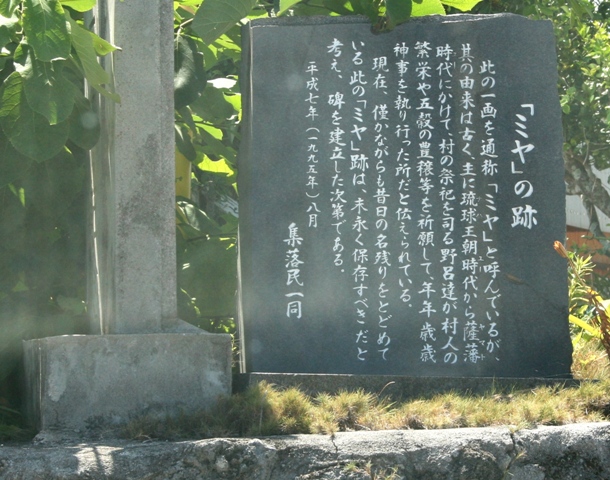 「ミヤ」の跡
此の一画を通称「ミヤ」と呼んでいるが、
其の由来は古く、主に琉球王朝時代から薩藩
時代にかけて、村の祭祀を司る野呂達が村人の
繁栄や五穀の豊穣等を祈願して、年年歳歳
神事を執り行った所だと伝えられている。
現在、僅かながらも昔日の名残りをとどめて
いる此の「ミヤ」跡は、末永く保存すべきだと
考え、碑を建立した次第である。
平成七年(一九九五年)八月
集落民一同